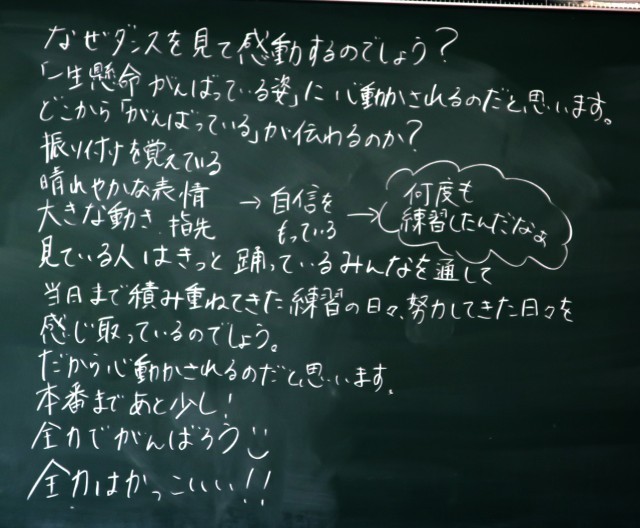 なぜダンスを見て感動するのでしょう？
「一生懸命がんばっている姿」に心動かされるのだと思います。
どこから「がんばっている」が伝わるのか？
振り付けを覚えている
晴れやかな表情
大きな動き、指先
→ 自信を
もっている
→ 何度も
練習したんだなぁ
見ている人はきっと踊っているみんなを通して
当日まで積み重ねてきた練習の日々、努力してきた日々を
感じ取っているのでしょう。
だから心動かされるのだと思います。
本番まであと少し！
全力でがんばろう
全力はかっこいい!!